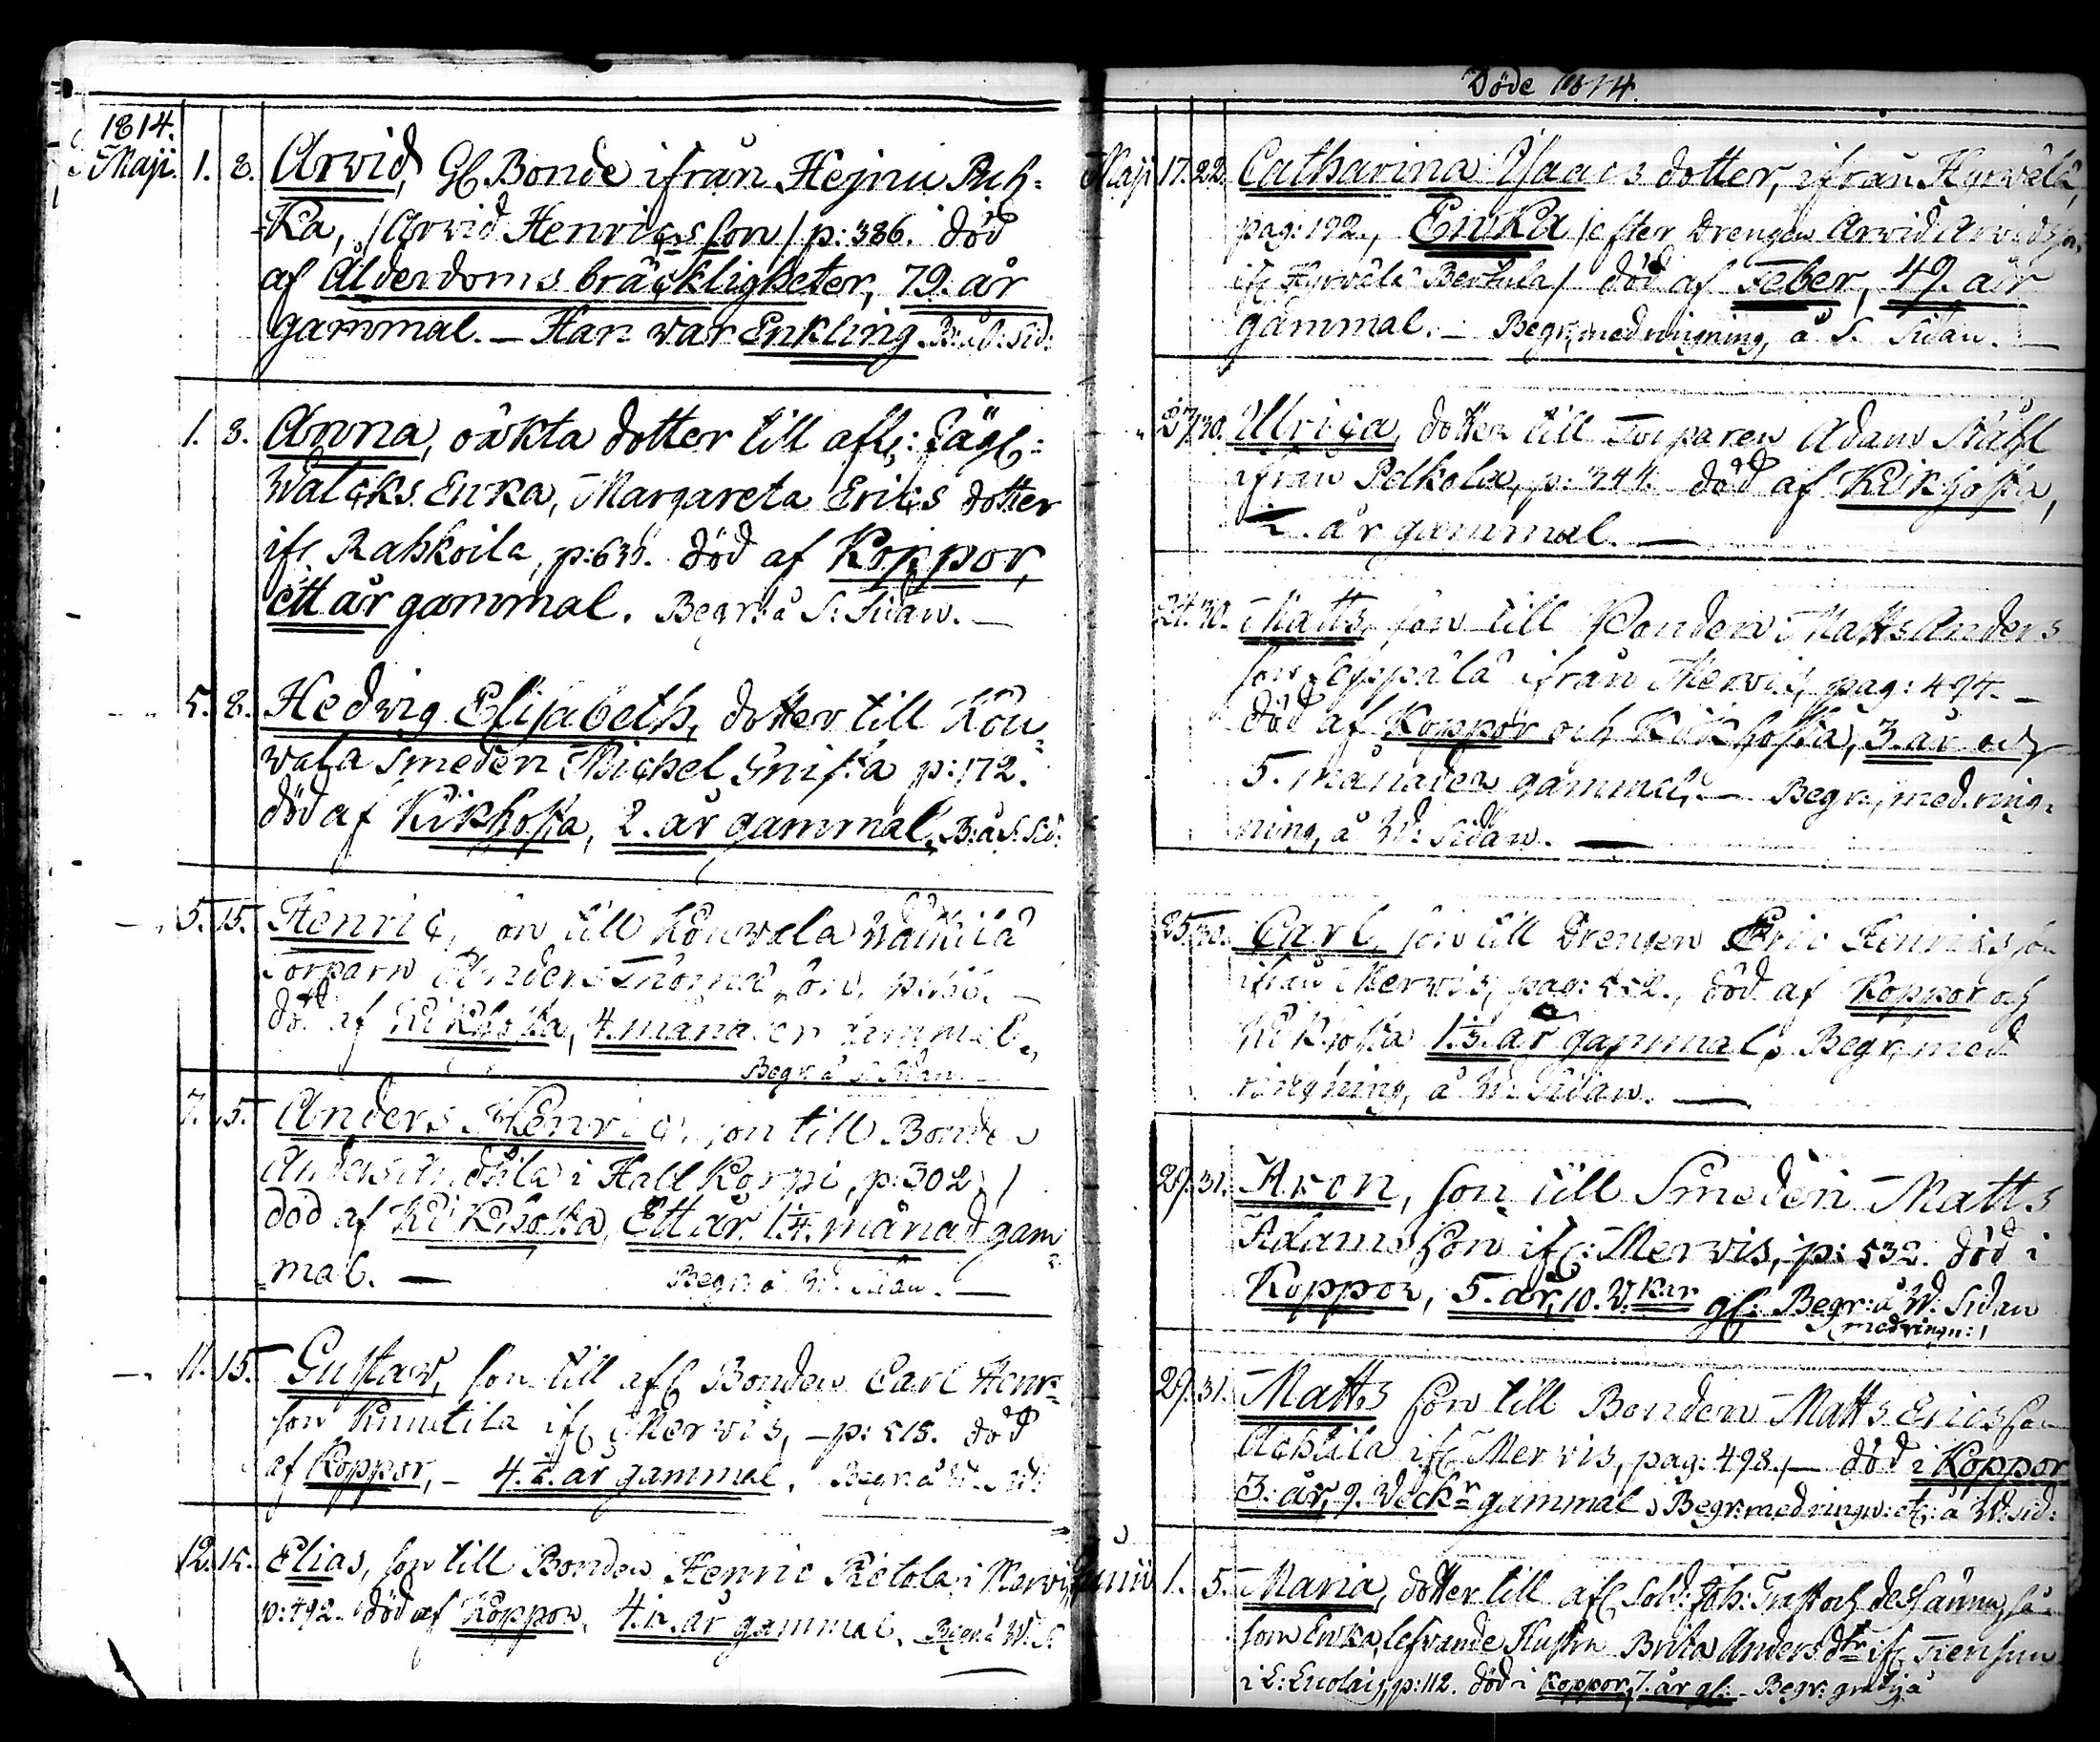 1814.
Maji. 1. 8. Arvid, Gl. Bonde ifrån Hejnu Puh=
=ka, /Arvid Henricsson/ p: 386. död
af Ålderdoms bräckligheter, 79. år
gammal. — Han var Enkling. B: å S: Sid:
1. 8. Anna, oäkta dotter till afl:
Walcks Enka, Margareta Erics dotter
ifr Rahkoila, död af Koppor,
ett år gammal. Begr: å S: Sidan. —
5. 8. Hedvig Elisabeth, dotter till Kou=
vala Smeden Michel p: 172.
död af Kikhosta, 2. år gammal. B: å S: Sid:
5. 15. Henric, son till Kouvala
Torparn Anders
död af Kikhosta, 4. månader gammal.
Begr: å S: Sidan. —
7. 15. Anders Henric, son till Bonden
Anders i Hallkorpi, p: 302. /
död af Kikhosta, Ett år 1 1/4. månad gam=
=mal. — Begr: å W: Sidan. —
11. 15. Gustav, son till afl Bonden Carl Henr=
son Knuutila ifr Mervis, — p: 515. död
af Koppor, — 4. 1/2. år gammal. Begr: å W: Sid:
12. 15. Elias, son till Bonden Henric Pietola i Mervis,
p: 492. död af Koppor, 4. 1/2. år gammal. Begr: å W: S:
Döde 1814.
Maji 17. 22. Catharina Isaacs dotter, ifrån Hyrvälä,
pag: 192., Enka /efter Drengen Arvid Arvidsson
ifr Hyrvälä Berttula/ död af Feber, 49. år
gammal. — Begr: med ringning, å S. Sidan. —
27. 30. Ulrica, dotter till Torparen Adam Ståhl
ifrån Pelkola, död af Kikhosta,
1/2. år gammal. —
24. 30. Matts, son till Bonden Matts Anders
son Seppälä ifrån Mervis, pag: 494. —
död af Koppor och Kikhosta, 3. år och
5. månader gammal. — Begr: med ring=
ning, å W: Sidan. —
25. 30. Carl, son till Drengen Eric Henriksson
ifrån Mervis, pag: 552., död af Koppor och
Kikhosta 1 1/3. år gammal, Begr: med
ringning, å W: Sidan. —
29. 31. Aron, son till Smeden Matts
Adamsson ifr: Mervis, p: 532. död i
Koppor, 5. år, 10. V:kor gl: Begr: å W: Sidan
/med ringn:/
29. 31. Matts son till Bonden Matts Ericsson
Achtila ifr Mervis, pag: 498. — död i Koppor
3. år, 9. Veckr gammal, Begr: med ringn: etc: å W: Sid:
Junii 1. 5. Maria, dotter till afl Sold: Joh: Trast och dess ännu så
som Enka, lefvande Hustru Brita Anders dtr ifr
i p: 112. död i Koppor, 7. år gl: — Begr: gratis å